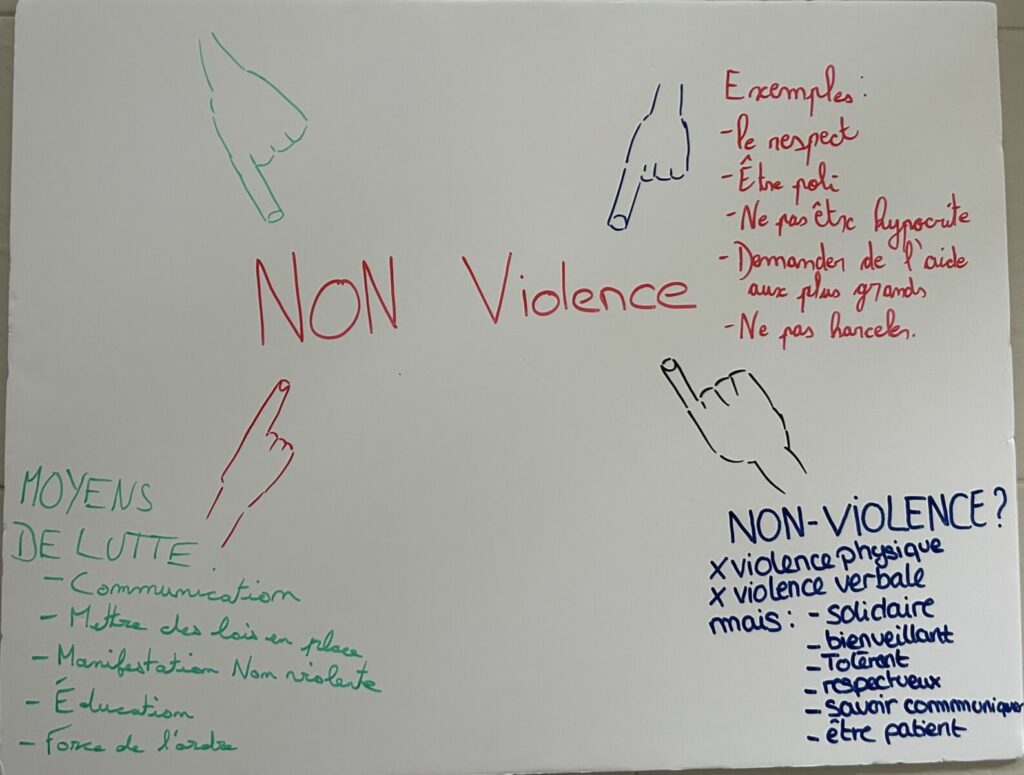 NON Violence
Exemples :
- le respect
- Être poli
- Ne pas être hypocrite
- Demander de l'aide
aux plus grands
- Ne pas harceler.
MOYENS
DE LUTTE :
- Communication
- Mettre des lois en place
- Manifestation Non violente
- Éducation
- Force de l'ordre
NON-VIOLENCE ?
X violence physique
X violence verbale
mais : - solidaire
- bienveillant
- Tolérent
- respectueux
- savoir communiquer
- être patient